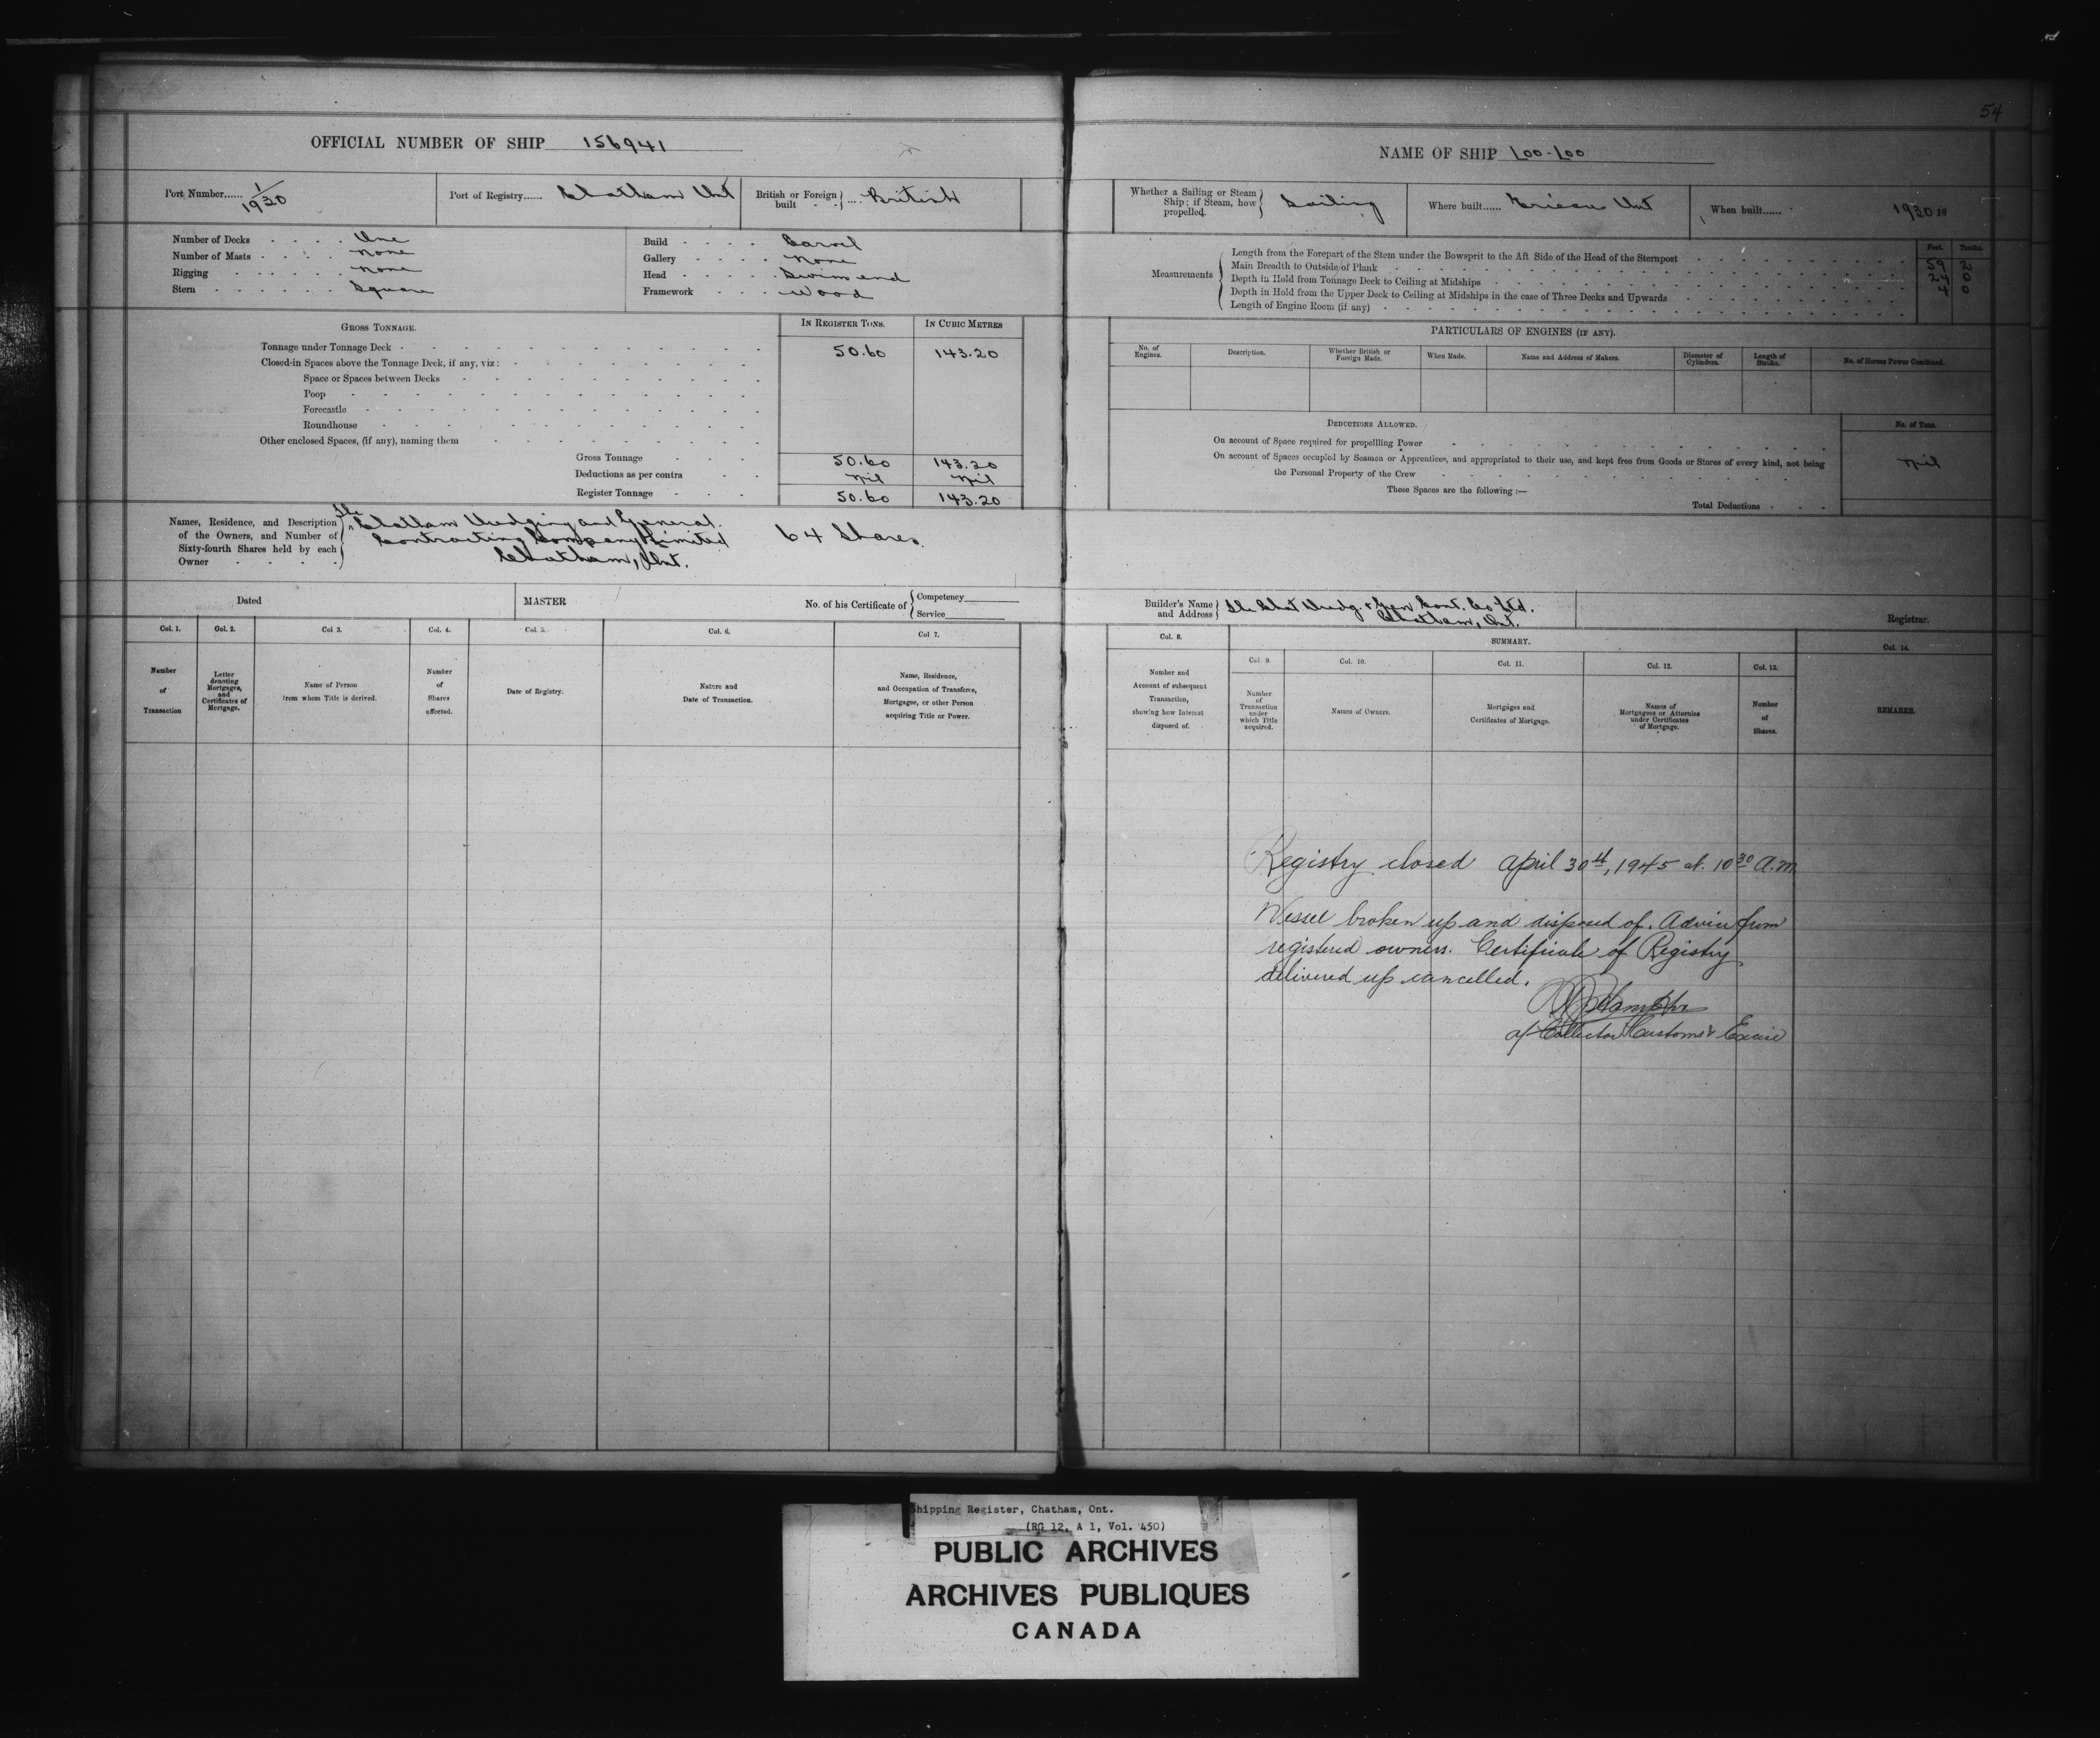 54
OFFICIAL NUMBER OF SHIP 156941
Port Number...... 1/1930
Port of Registry...... Chatham Ont
British or Foreign built ... British
Number of Decks One
Number of Masts None
Rigging None
Stern Square
Build Carvel
Gallery None
Head Swim end
Framework Wood
GROSS TONNAGE.
IN REGISTER TONS.
IN CUBIC METRES
Tonnage under Tonnage Deck 50.60 143.20
Closed-in Spaces above the Tonnage Deck, if any, viz:
Space or Spaces between Decks
Poop
Forecastle
Roundhouse
Other enclosed Spaces, (if any), naming them
Gross Tonnage 50.60 143.20
Deductions as per contra Nil Nil
Register Tonnage 50.60 143.20
Names, Residence, and Description
of the Owners, and Number of
Sixty-fourth Shares held by each
Owner
The Chatham Dredging and General
Contracting Company Limited
Chatham, Ont.
64 Shares
Dated
MASTER
No. of his Certificate of
Competency
Service
Col. 1. Col. 2. Col 3. Col. 4. Col. 5. Col. 6. Col 7.
Number of Transaction
Letter denoting Mortgages, and Certificates of Mortgage.
Name of Person from whom Title is derived.
Number of Shares affected.
Date of Registry.
Nature and Date of Transaction.
Name, Residence, and Occupation of Transferee, Mortgagee, or other Person acquiring Title or Power.
NAME OF SHIP Loo-Loo
Whether a Sailing or Steam Ship; if Steam, how propelled. Sailing
Where built...... Erieau Ont
When built...... 1930 18
Feet. Tenths.
Measurements
Length from the Forepart of the Stem under the Bowsprit to the Aft Side of the Head of the Sternpost 59 2
Main Breadth to Outside of Plank 24 0
Depth in Hold from Tonnage Deck to Ceiling at Midships 4 0
Depth in Hold from the Upper Deck to Ceiling at Midships in the case of Three Decks and Upwards
Length of Engine Room (if any)
PARTICULARS OF ENGINES (IF ANY).
No. of Engines.
Description.
Whether British or Foreign Made.
When Made.
Name and Address of Makers.
Diameter of Cylinders.
Length of Stroke.
No. of Horses Power Combined.
DEDUCTIONS ALLOWED.
No. of Tons.
On account of Space required for propellling Power
On account of Spaces occupied by Seamen or Apprentices, and appropriated to their use, and kept free from Goods or Stores of every kind, not being
the Personal Property of the Crew
Nil
These Spaces are the following :—
Total Deductions
Builder's Name and Address
The Chat Dredg. & Gen Cont. Co Ltd.
Chatham, Ont.
Registrar.
Col. 8.
SUMMARY.
Col. 9. Col. 10. Col. 11. Col. 12. Col. 13. Col. 14.
Number and Account of subsequent Transaction, showing how Interest disposed of.
Number of Transaction under which Title acquired.
Names of Owners.
Mortgages and Certificates of Mortgage.
Names of Mortgagees or Attornies under Certificates of Mortgage.
Number of Shares.
REMARKS.
Registry closed April 30th, 1945 at 10 30 A.M.
Vessel broken up and disposed of. Advice from
registered owners. Certificate of Registry
delivered up cancelled.
a/ Collector Customs & Excise
Shipping Register, Chatham, Ont.
(RG 12, A 1, Vol. 450)
PUBLIC ARCHIVES
ARCHIVES PUBLIQUES
CANADA